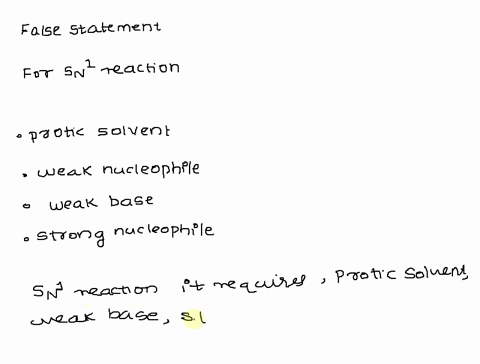 False statement
For SN1 reaction
• protic solvent
• weak nucleophile
• weak base
• strong nucleophile
SN1 reaction it requires, protic solvent,
weak base, s